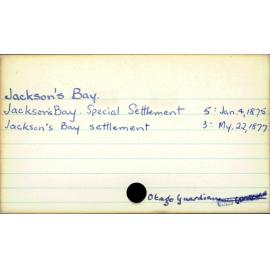 Jackson's Bay.
Jackson's Bay. Special Settlement 5: Jan. 4, 1875
Jackson's Bay settlement 3: My. 22, 1877
Otago Guardian